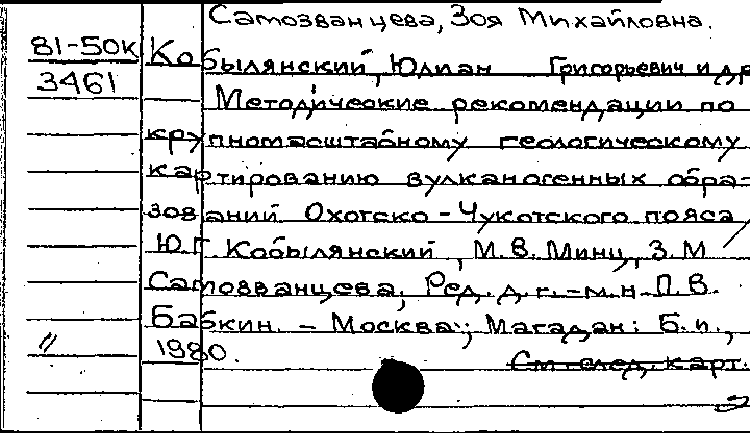 Самозванцева, Зоя Михайловна.
81-50к
3461
Кобылянский, Юлиан Григорьевич и др
Методические рекомендации по
крупномасштабному геологическому
картированию вулканогенных обра-
зований Охотско-Чукотского пояса /
Ю.Г. Кобылянский, М.В. Минц, З.М
Самозванцева; Ред. д.г.-м.н. П.В.
Бабкин. - Москва; Магадан: Б.и.,
1980.
См след. карт.